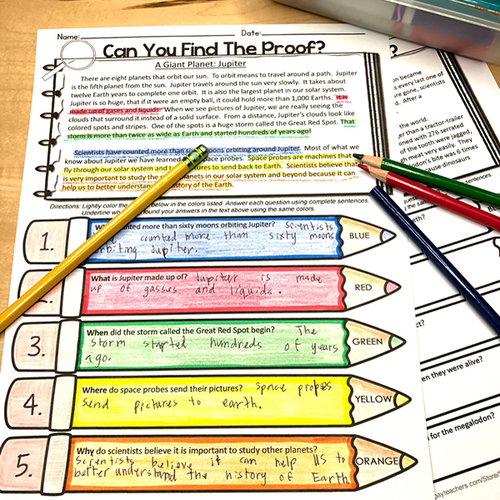 Name: Date:
Can You Find The Proof?
A Giant Planet: Jupiter
There are eight planets that orbit our sun. To orbit means to travel around a path. Jupiter
is the fifth planet from the sun. Jupiter travels around the sun very slowly. It takes about
twelve Earth years to complete one orbit. It is also the largest planet in our solar system.
Jupiter is so huge, that if it were an empty ball, it could hold more than 1,000 Earths. It is
made up of gases and liquids. When we see pictures of Jupiter, we are really seeing
clouds that surround it instead of a solid surface. From a distance, Jupiter's clouds look like
colored spots and stripes. One of the spots is a huge storm called the Great Red Spot. That
storm is more than twice as wide as Earth and started hundreds of years ago!
Scientists have counted more than moons orbiting around Jupiter. Most of what we
know about Jupiter we have learned space probes. Space probes are machines that
fly through our solar system and pictures to send back to Earth. Scientists believe that
is very important to study the planets in our solar system and beyond because it can
help us to better understand the history of Earth.
Directions: Lightly color the below in the colors listed. Answer each question using complete sentences.
Underline where found your answers in the text above using the same colors.
1. counted more than sixty moons orbiting Jupiter? Scientists
counted more than sixty moons
orbiting Jupiter.
BLUE
2. What is Jupiter made up of? Jupiter is made
up of gasses and liquids.
RED
3. When did the storm called the Great Red Spot begin? The
storm started hundreds of years
ago.
GREEN
4. Where do space probes send their pictures? Space probes
send pictures to earth.
YELLOW
5. Why do scientists believe it is important to study other planets?
Scientists believe it can help us to
better understand the history of Earth
ORANGE
?
n became
every last one of
gone, scientists
d. After a
the world.
than a tractor-trailer
ned with 276 serrated
of that tooth were jagged,
meat easily. They
odon's site was 6 times
cause dinosaurs
ct?
en they were alive?
for the megalodon?
payteachers.com/Store/